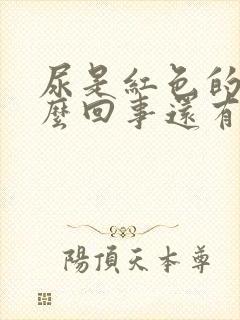 尿是紅色的
麼回事還有
陽頂天本尊